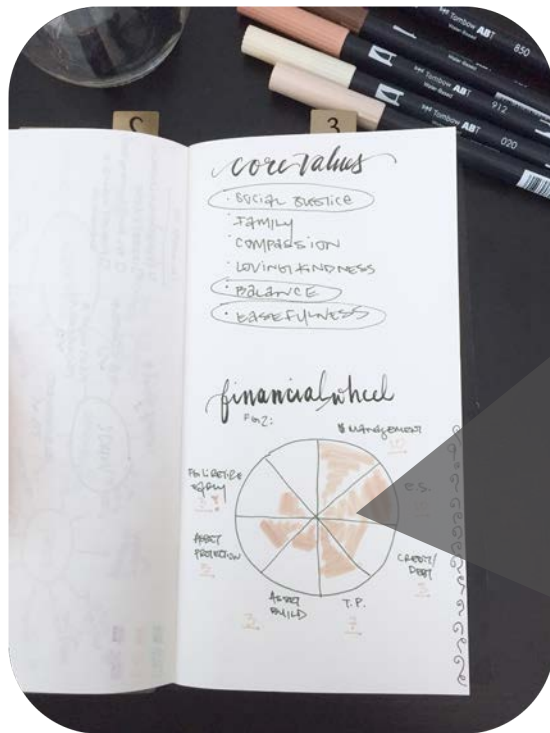 Tombow ABT
850
Tombow ABT
Water Based
912
Tombow ABT
Water Based
020
3
core values
· SOCIAL JUSTICE
· FAMILY
· COMPASSION
· LOVING KINDNESS
· BALANCE
· EASEFULNESS
financial wheel
FEB 2:
$ MANAGEMENT
10
e.s.
CREDIT/
DEBT
T.P.
7
ASSET
BUILD
3
ASSET
PROTECTION
5
RETIRE
3